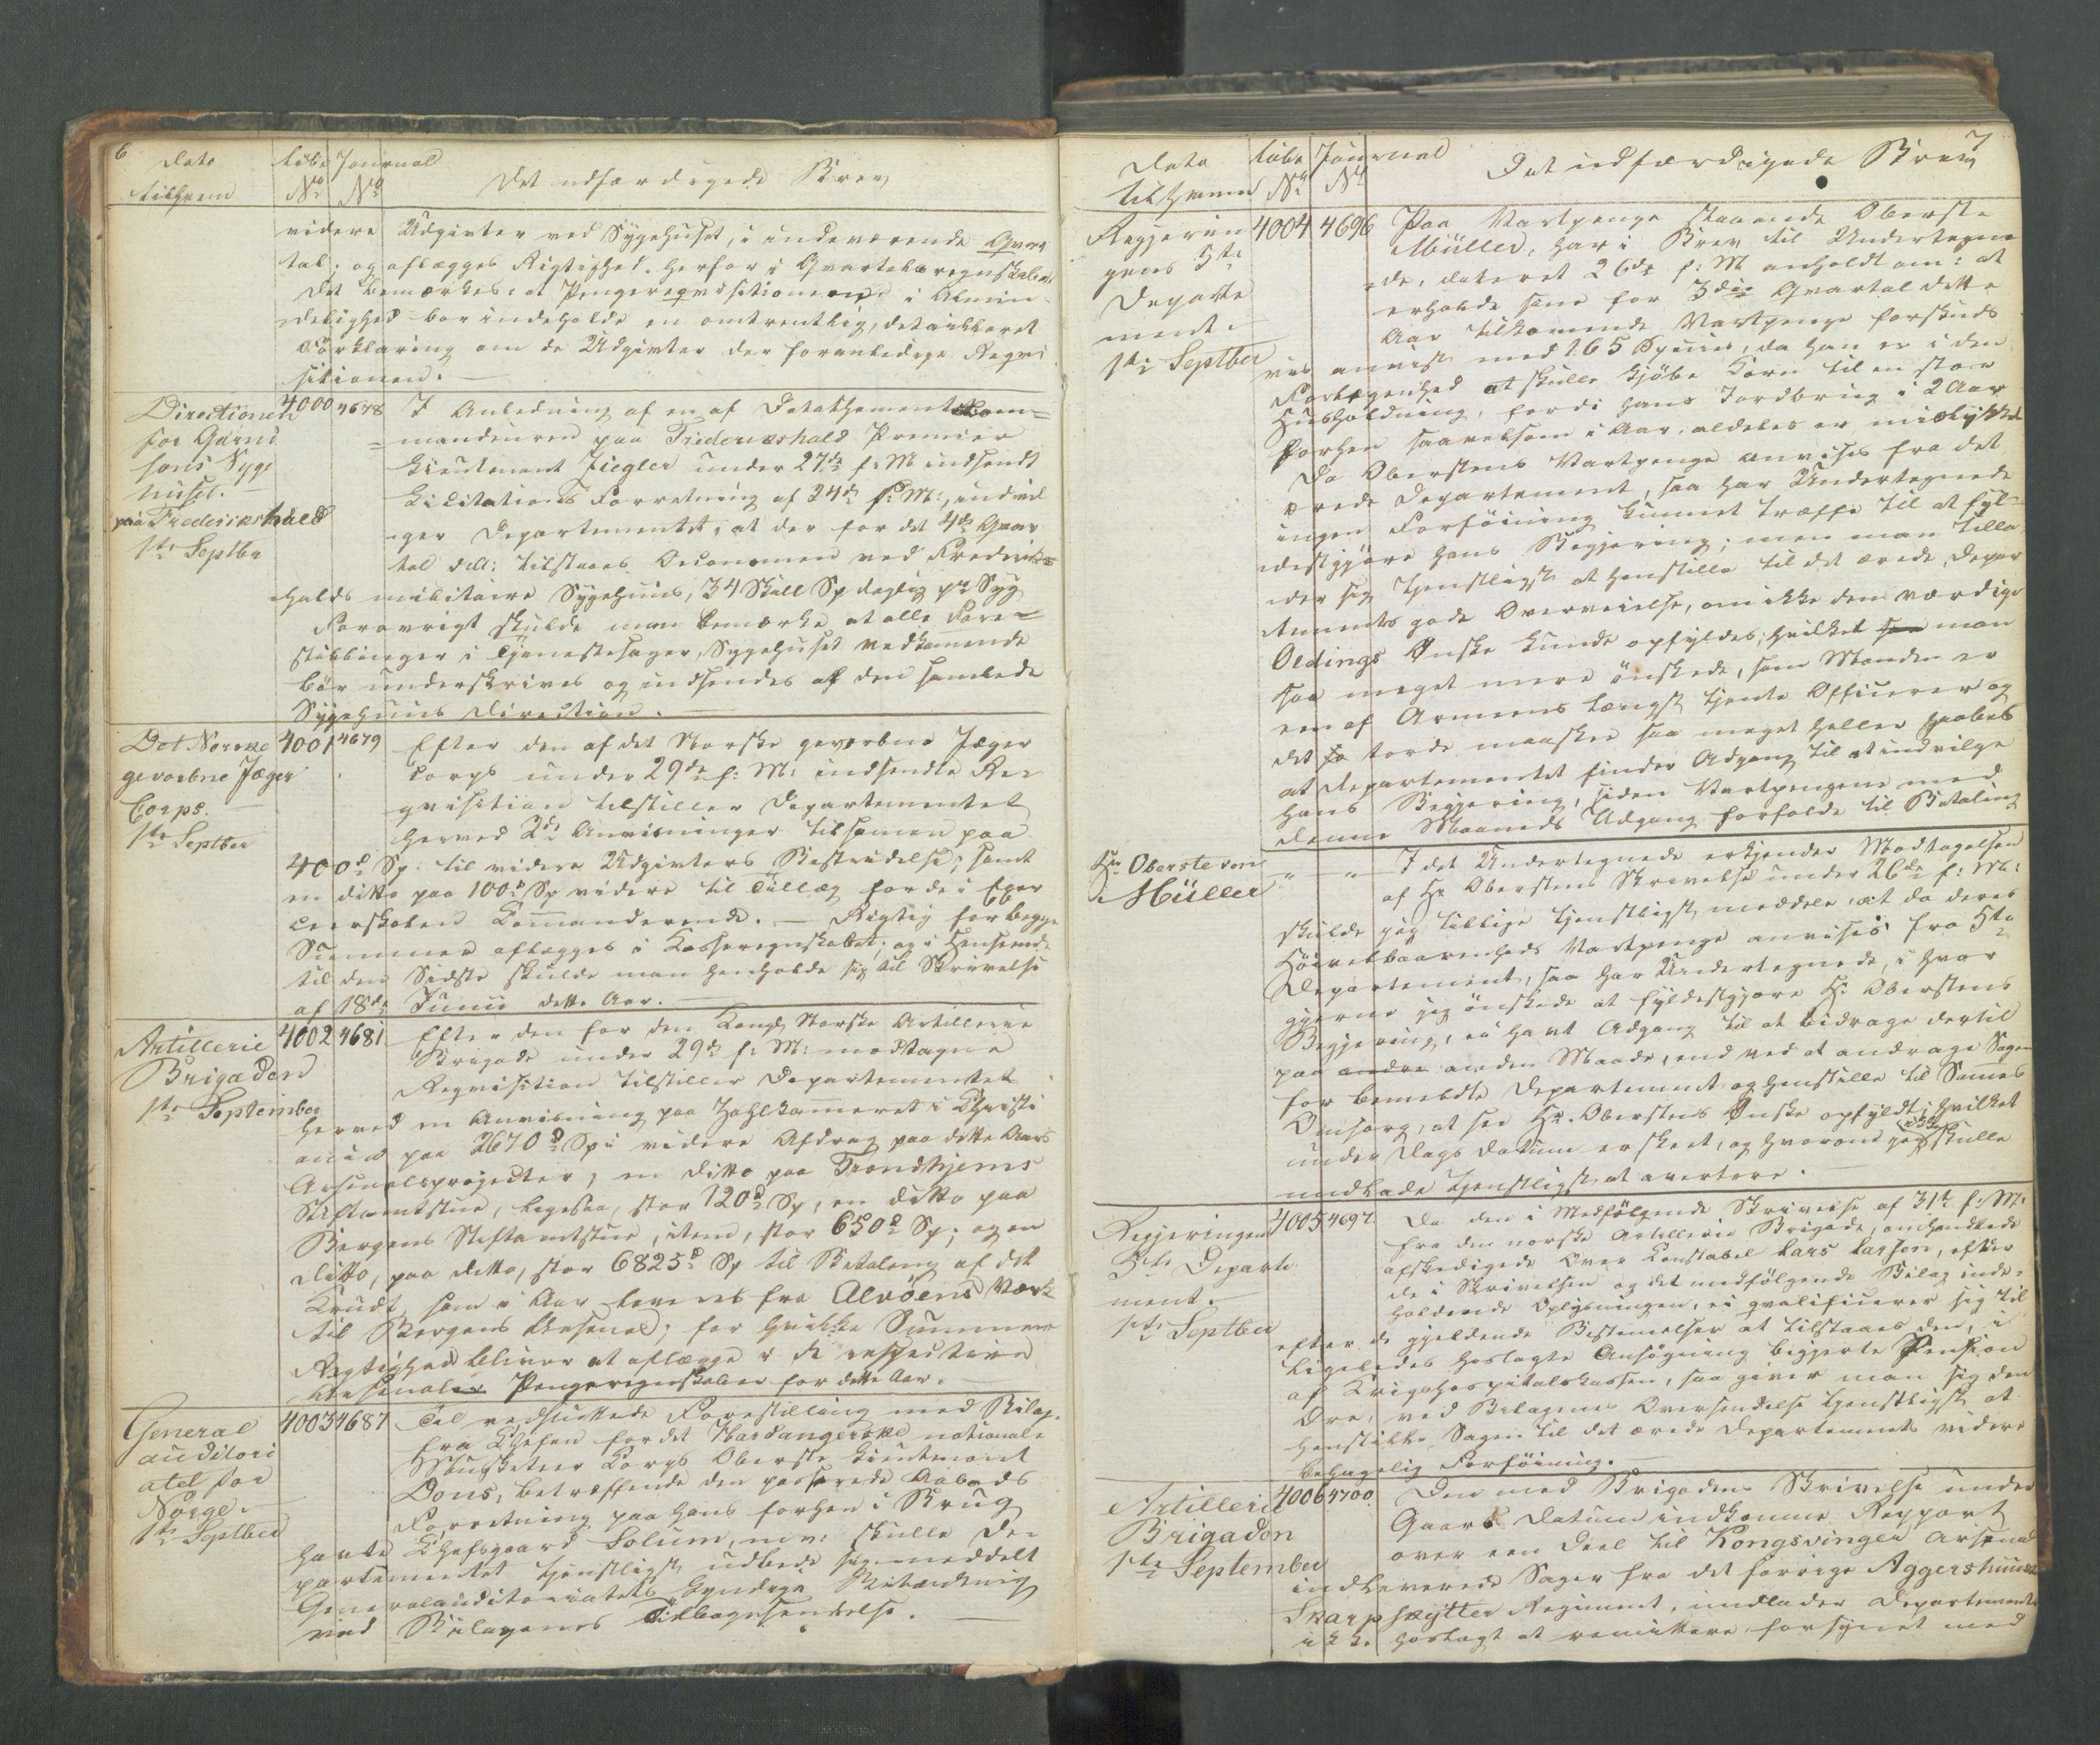 6
Dato
tilhvem
Løbe
No
Journal
No
Det udfærdigede Brev
videre Udgivter ved Sygehuset, i indeværende Qvar
tal; og aflægges Rigtighed herfor i Qvartalsregnskabet.
Det bemærkes: at Pengereqvisitionerne i Almin-
delighed bør indeholde en omtrentlig, detailleret
Forklaring om de Udgivter der foranledige Reqvi
sitionen.
Directionen
for Garni
sons Syge
huset.
paa Frederikshald
1ste Septbr
4000
4678
I Anledning af en af Detachementskom=
=mandeuren paa Fredrikshald Premier
Lieutenant Ziegler under 27de f: M indsendt
Licitations Forretning af 24de f: M:, indvil
-ger Departementet, at der for det 4de Qvar
tal d: A: tilstaaes Oeconomen ved Fredriks=
-halds militaire Sygehuus, 34 Skill Sp daglig pr Syg
Forøvrigt skulde man bemærke at alle Fore=
stillinger i Tjenestesager, Sygehuset vedkommende
bør underskrives og indsendes af den samlede
Sygehuus Direction.
Det Norske
gevorbne Jæger
Corps.
1ste Septber
4001
4679
Efter den af det Norske gevorbne Jæger
Corps under 29de f: M: indsendte Re-
qvisition tilstiller Departementet
herved 2de Anvisninger tilsamen paa
400d Sp til videre Udgivters Bestridelse; samt
en ditto paa 100d Sp videre til Tillæg for de i Exer
ceerskolen Commanderende. — Rigtig for begge
Summer aflægges i Casseregnskabet; og i Henseende
til den Sidste skulde man henholde sig til Skrivelse
af 18de Junii dette Aar.
Artillerie
Brigaden
1ste September
4002
4681
Efter den for den Kongl Norske Artillerie
Brigade under 29de f: M: modtagne
Reqvisition tilstiller Departementet
herved en Anvisning paa Zahlkammeret i Christi
ania paa 2670d Sp i videre Afdrag paa dette Aars
Arsenalsprojecter, en Ditto paa Trondhjems
Stiftamtstue, ligesaa, stor 120d Sp, en ditto paa
Bergens Stiftamtstue, item, stor 650d Sp; og en
Ditto, paa ditto, stor 6825d Sp til Betaling af det
Krudt, som i Aar leveres fra Alvöens Værk
til Bergens Arsenal; for hvilke Summer
Rigtighed bliver at aflægge i de respective
Arsenaler Pengeregnskaber for dette Aar.
General
auditori
atet for
Norge.
1ste Septber
4003
4687
Til vedsluttede Forestilling med Bilag,
fra Chefen for det Hardangerske nationale
Musketeer Corps Oberste Lieutenant
Dons, betræffende den passerede Aabods
Forretning paa hans forhen i Brug
havte Chefsgaard Solum, m.v. skulle De-
partementet tjenstligst udbede sig meddelt
Generalauditoriatets kyndige Betænkning
ved Bilagenes Tilbagesendelse.
7
Dato
tilhvem
Løbe
No
Journal
No
Det udfærdigede Brev
Regjerin
gens 5te
Departe
ment.
1ste Septber
4004
4696
Paa Vartpenge staaende Oberste
Müller, har i Brev til Undertegne
de, dateret 26de f: M anholdt om: at
erholde sine for 3die Qvartal dette
Aar tilkomende Vartpenge forskuds
vis anvist med 165 Species, da han er i den
Forlegenhed at skulle kjöbe Korn til en stor
Huusholdning, fordi hans Jordbrug i 2 Aar
forhen saavelsom i Aar, aldeles er mislykket
Da Oberstens Vartpenge anvises fra det
ærede Departement, saa har Undertegnede
ingen Forföining kunnet træffe til at fyl-
destgjöre hans Begjering; men man tilla
der sig tjenstligst at henstille til det ærede Depar
tements gode Overveielse, om ikke den værdige
Oldings Önske kunde opfyldes; hvilket saa man
saa meget mere önskede, som Manden er
een af Armeens længst tjente Officerer og
det fa torde maaskee saa meget heller haabes
at Departementet finder Adgang til at indvilge
hans Begjering, siden Vartpengene med
denne Maaneds Udgang forfalde til Betaling
Hr. Oberste von
Müller
" "
I det Undertegnede erkjender Modtagelsen
af Hr Oberstens Skrivelse under 26de f: M:
skulde jeg tillige tjenstligst meddele, at da deres
Höivelbaarenheds Vartpenge anvises fra 5te
Departement, saa har Undertegnede, i hvor
gjerne jeg önskede at fyldestgjöre Hr Oberstens
Begjering, ei havt Adgang til at bidrage dertil
paa andre anden Maade, end ved at andrage Sagen
for bemeldte Departement og henstille til Sammes
Omsorg, at see Hr. Oberstens Önske opfyldt; hvilket
under Dags Datum er skeet, og hvorom jeg ikke skulle
undlade tjenstligst at avertere.
Regjeringens
5te Departe
ment.
1ste Septber
4005
4697
Da den i Medfölgende Skrivelse af 31te f: M:
fra den norske Artillerie Brigade, omhandlede
afskedigede Over Constabel Lars Larsen, efter
de i Skrivelsen og det medfölgende Bilag inde-
holdende Oplysninger, ei qvalificerer sig til
efter de gjeldende Bestemelser at tilstaaes den, i
ligeledes hoslagte Ansögning begjerte Pension
af Krigshospitalskassen, saa giver man sig den
Ære, ved Bilagenes Oversendelse tjenstligst at
henstille Sagen til det ærede Departements videre
behagelig Forföining.
Artillerie
Brigaden
1ste September
4006
4700
Den med Brigadens Skrivelse under
Gaars Datum indkomne Rapport
over een Deel til Kongsvinger Arsenal
indleverede Sager fra det forrige Aggershuusske
Skarpskytter Regiment, undlader Departementet
ikke hoslagt at remittere forsynet med